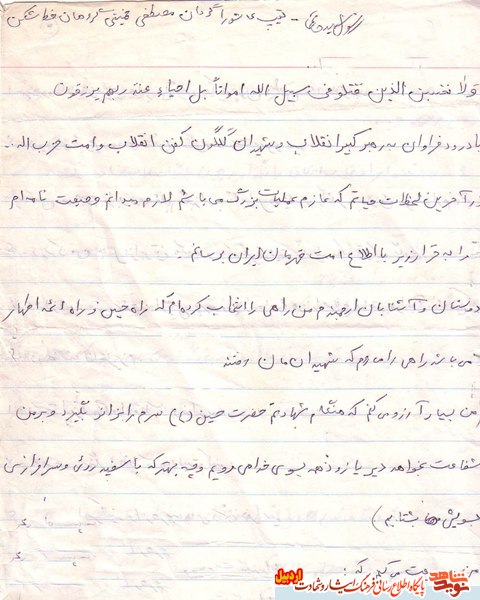 تیپ عاشورا گردان مصطفی خمینی گروهان خط شکن
ولا تحسبن الذین قتلو فی سبیل الله امواتاً بل احیاء عند ربهم یرزقون
با درود فراوان به رهبر کبیر انقلاب و شهیدان گلگون کفن انقلاب و امت حزب الله
در آخرین لحظات حیاتم که عازم عملیات بزرگ می باشم لازم میدانم وصیت نامه ام
را به قرار زیر با اطلاع امت قهرمان ایران برسانم.
دوستان و آشنایان ارجمندم من راهی را انتخاب کرده ام که راه حسین و راه ائمه اطهار
می باشد راهی را میروم که شهیدان مان رفتند
من بسیار آرزو می کنم که هنگام شهادتم حضرت حسین (ع) سرم را بزانو بگیرد و بر من
شفاعت بخواهد دیر یا زود همه بسوی خدا می رویم و چه بهتر که با سفید روئی و سرافرازی
بسویش بشتابیم)
می کنم که:
نوید شاهد
پایگاه اطلاع رسانی فرهنگ ایثار و شهادت اردبیل